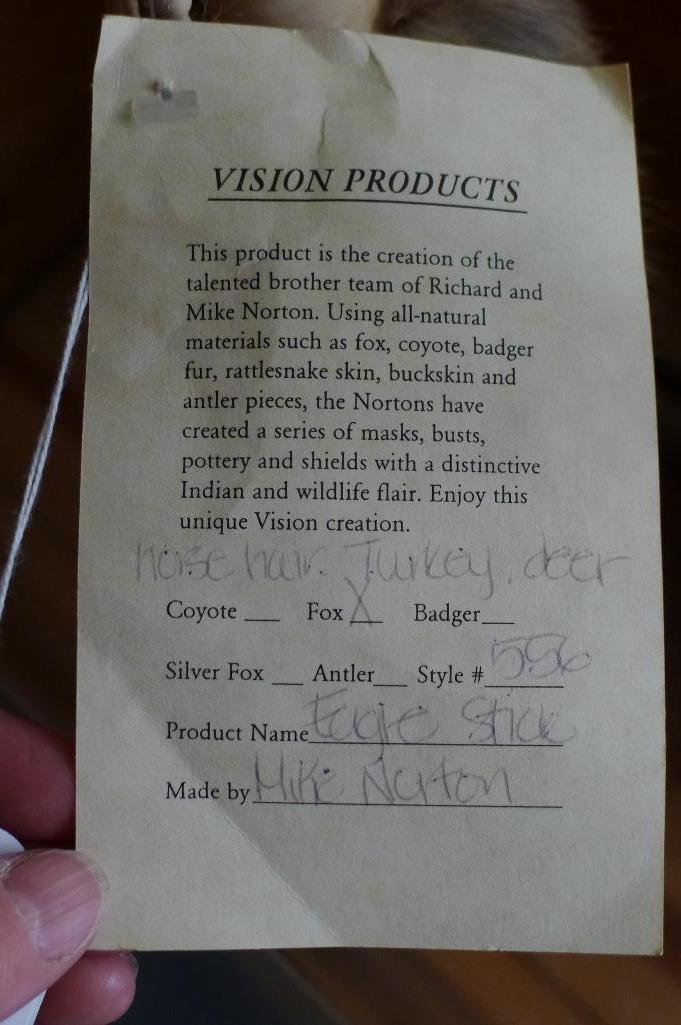 VISION PRODUCTS
This product is the creation of the
talented brother team of Richard and
Mike Norton. Using all-natural
materials such as fox, coyote, badger
fur, rattlesnake skin, buckskin and
antler pieces, the Nortons have
created a series of masks, busts,
pottery and shields with a distinctive
Indian and wildlife flair. Enjoy this
unique Vision creation.
horse hair. Turkey, deer
Coyote ___ Fox X Badger___
Silver Fox ___ Antler___ Style # 556
Product Name Eagle Stick
Made by Mike Norton